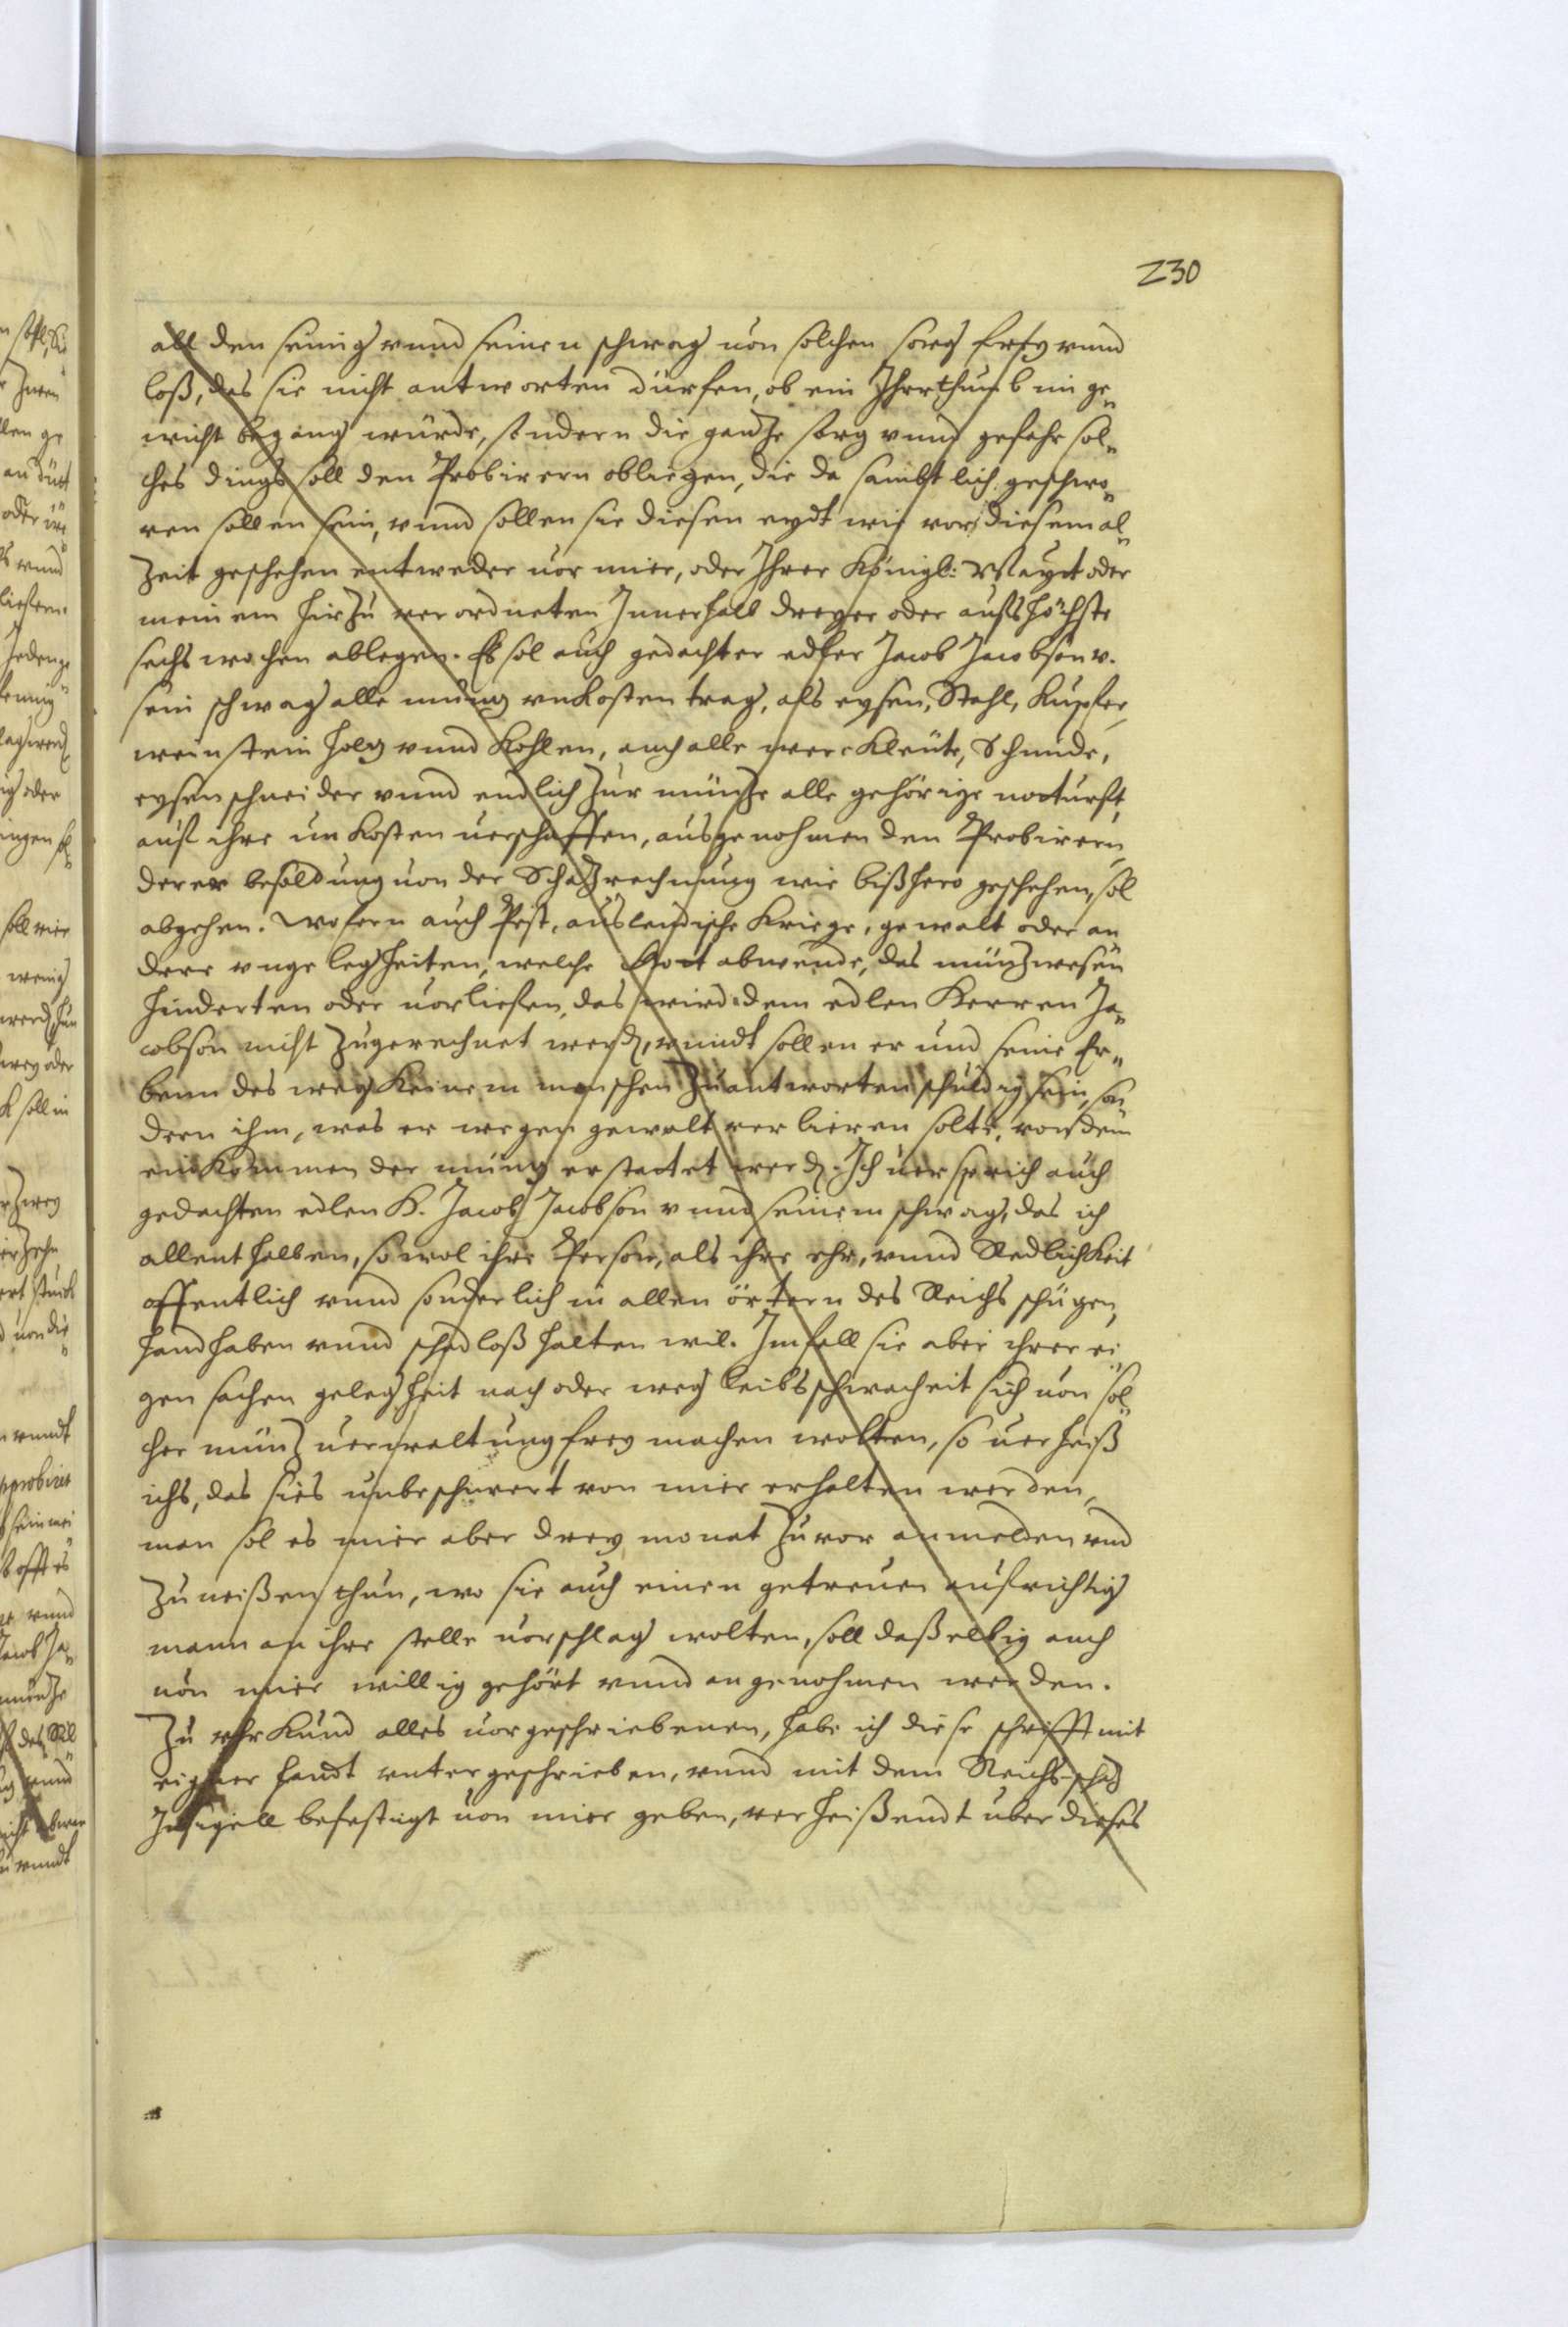 230
all den seinig vnnd seinen schwag von solchen sorg frey vnnd
loß, das sie nicht antworten dürfen, ob ein Jhrrthumb im ge„
wicht begang würde, sondern die gantze sorg vnnd gefahr sol„
ches dings soll den Probirern obliegen, die da sambtlich geschwo„
ren sollen sein, vnnd sollen sie diesen eydt wie vor diesem al„
Zeit geschehen entweder vor mier, oder Jhrer Königl: Mayt oder
meinem hirzu verordneten Jnnerhalb dreyer oder aufs höchste
sechs wochen ablegen. Es sol auch gedachter edler Jacob Jacobson v.
sein schwag alle müntz vnkosten trag, als eysen, Stahl, Kupfer,
weinstein holtz vnnd Kohlen, auch alle werckleute, Schmide,
eysenschneider vnnd endlich Zur müntze alle gehörige notturft,
auf ihre unkosten verschaffen, ausgenohmen den Probirern,
derer besoldung von der Schatzrechnung wie bißhero geschehen, sol
abgehen. Wofern auch Pest, auslendische Kriege, gewalt oder an
dere vngelegheiten, welche Gott abwende, das müntzwesen
hinderten oder vorliefen, das wird dem edlen Herren Ja„
cobson nicht Zugerechnet werd, vnndt sollen er und seine Er„
benn des weg Keinem menschen Zu antworten schuldig sein, son
dern ihm, was er wegen gewalt verlieren solte, von dem
einkommen der müntz erstattet werd. Jch versprich auch
gedachten edlen H. Jacob Jacobson vnnd seinem schwag, das ich
allenthalben, so wol ihre Person, als ihre ehr, vnnd Redlichkeit
offentlich vnnd sonderlich in allen örtern des Reichs schützen,
handhaben vnnd schadloß halten wil. Jm fall sie aber ihrer ei„
gen sachen gelegheit nach oder weg leibsschwacheit sich von sol„
cher müntz verwaltung frey machen wolten, so verheiß
ichs, das sies unbeschwert von mier erhalten werden,
man sol es mier aber drey monat Zuvor anmelden vnd
Zu wißen thun, wo sie auch einen getreuen aufrichtig
mann an ihre stelle vorschlag wolten, soll daßelbig auch
von mier willig gehört vnnd angenohmen werden.
Zu vhrkund alles vorgeschriebenen, habe ich diese schrifft mit
eigner handt vntergeschrieben, vnnd mit dem Reichs-schatz
Jnsigell befestigt von mier geben, verheißendt uber dieses